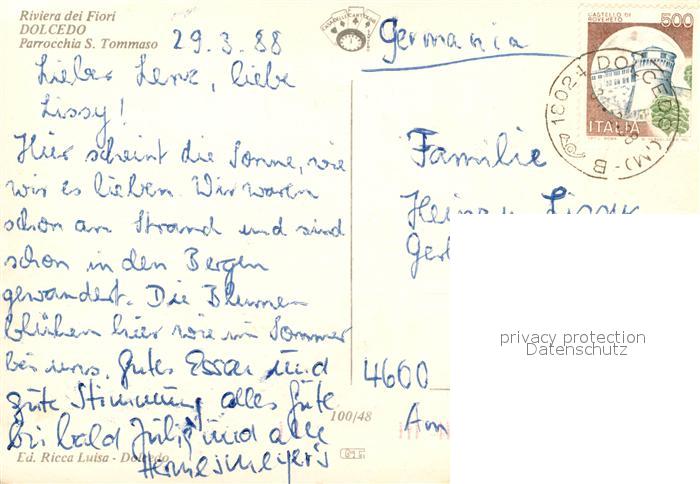 Riviera dei Fiori
DOLCEDO
Parrocchia S. Tommaso
29.3.88
Lieber Lenz, liebe
Lissy!
Hier scheint die Sonne, wie
wir es lieben. Wir waren
schon am Strand und sind
schon in den Bergen
gewandert. Die Blumen
blühen hier wie im Sommer
bei uns. Gutes Essen und
gute Stimmung, alles Gute
bis bald und alle
100/48
Ed. Ricca Luisa - Dolcedo
Germania
CASTELLO DI
ROVERETO
500
ITALIA
18024 DOLCEDO (IM) - B
Familie
4600
privacy protection
Datenschutz